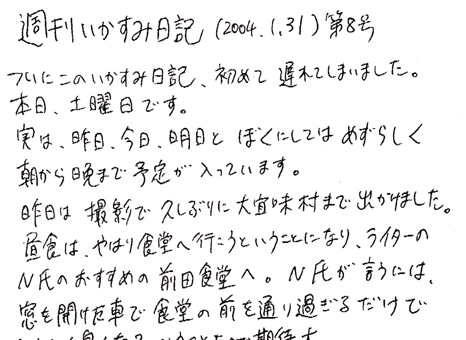 週刊いかすみ日記 (2004.1.31) 第8号
ついにこのいかすみ日記、初めて遅れてしまいました。
本日、土曜日です。
実は、昨日、今日、明日と ぼくにしては めずらしく
朝から晩まで予定が入っています。
昨日は 撮影で久しぶりに大宜味村まで出かけました。
昼食は、やはり食堂へ行こうということになり、ライターの
N氏のおすすめの前田食堂へ。N氏が言うには、
窓を開けた車で食堂の前を通り過ぎるだけで